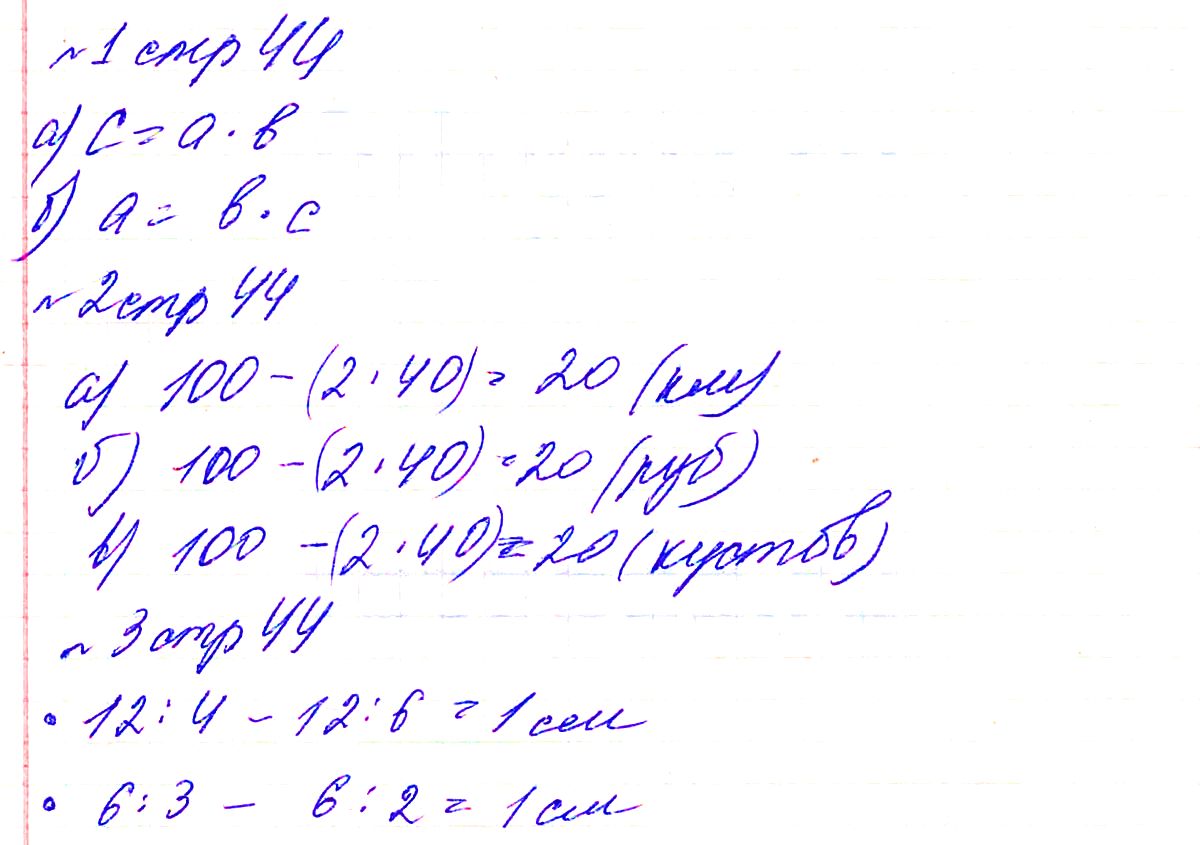 ~1 стр 44
а) с = а · в
б) а = в · с
~2 стр 44
а) 100 - (2 · 40) = 20 (км)
б) 100 - (2 · 40) = 20 (руб)
в) 100 - (2 · 40) = 20 (кустов)
~3 стр 44
· 12 : 4 - 12 : 6 = 1 см
· 6 : 3 - 6 : 2 = 1 см